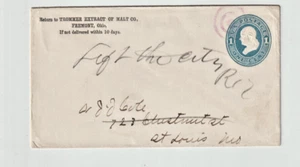 Return to TROMMER EXTRACT OF MALT CO.
FREMONT, Ohio,
If not delivered within 10 days.
Left the city
Cole
723 Chestnut st
St Louis Mo